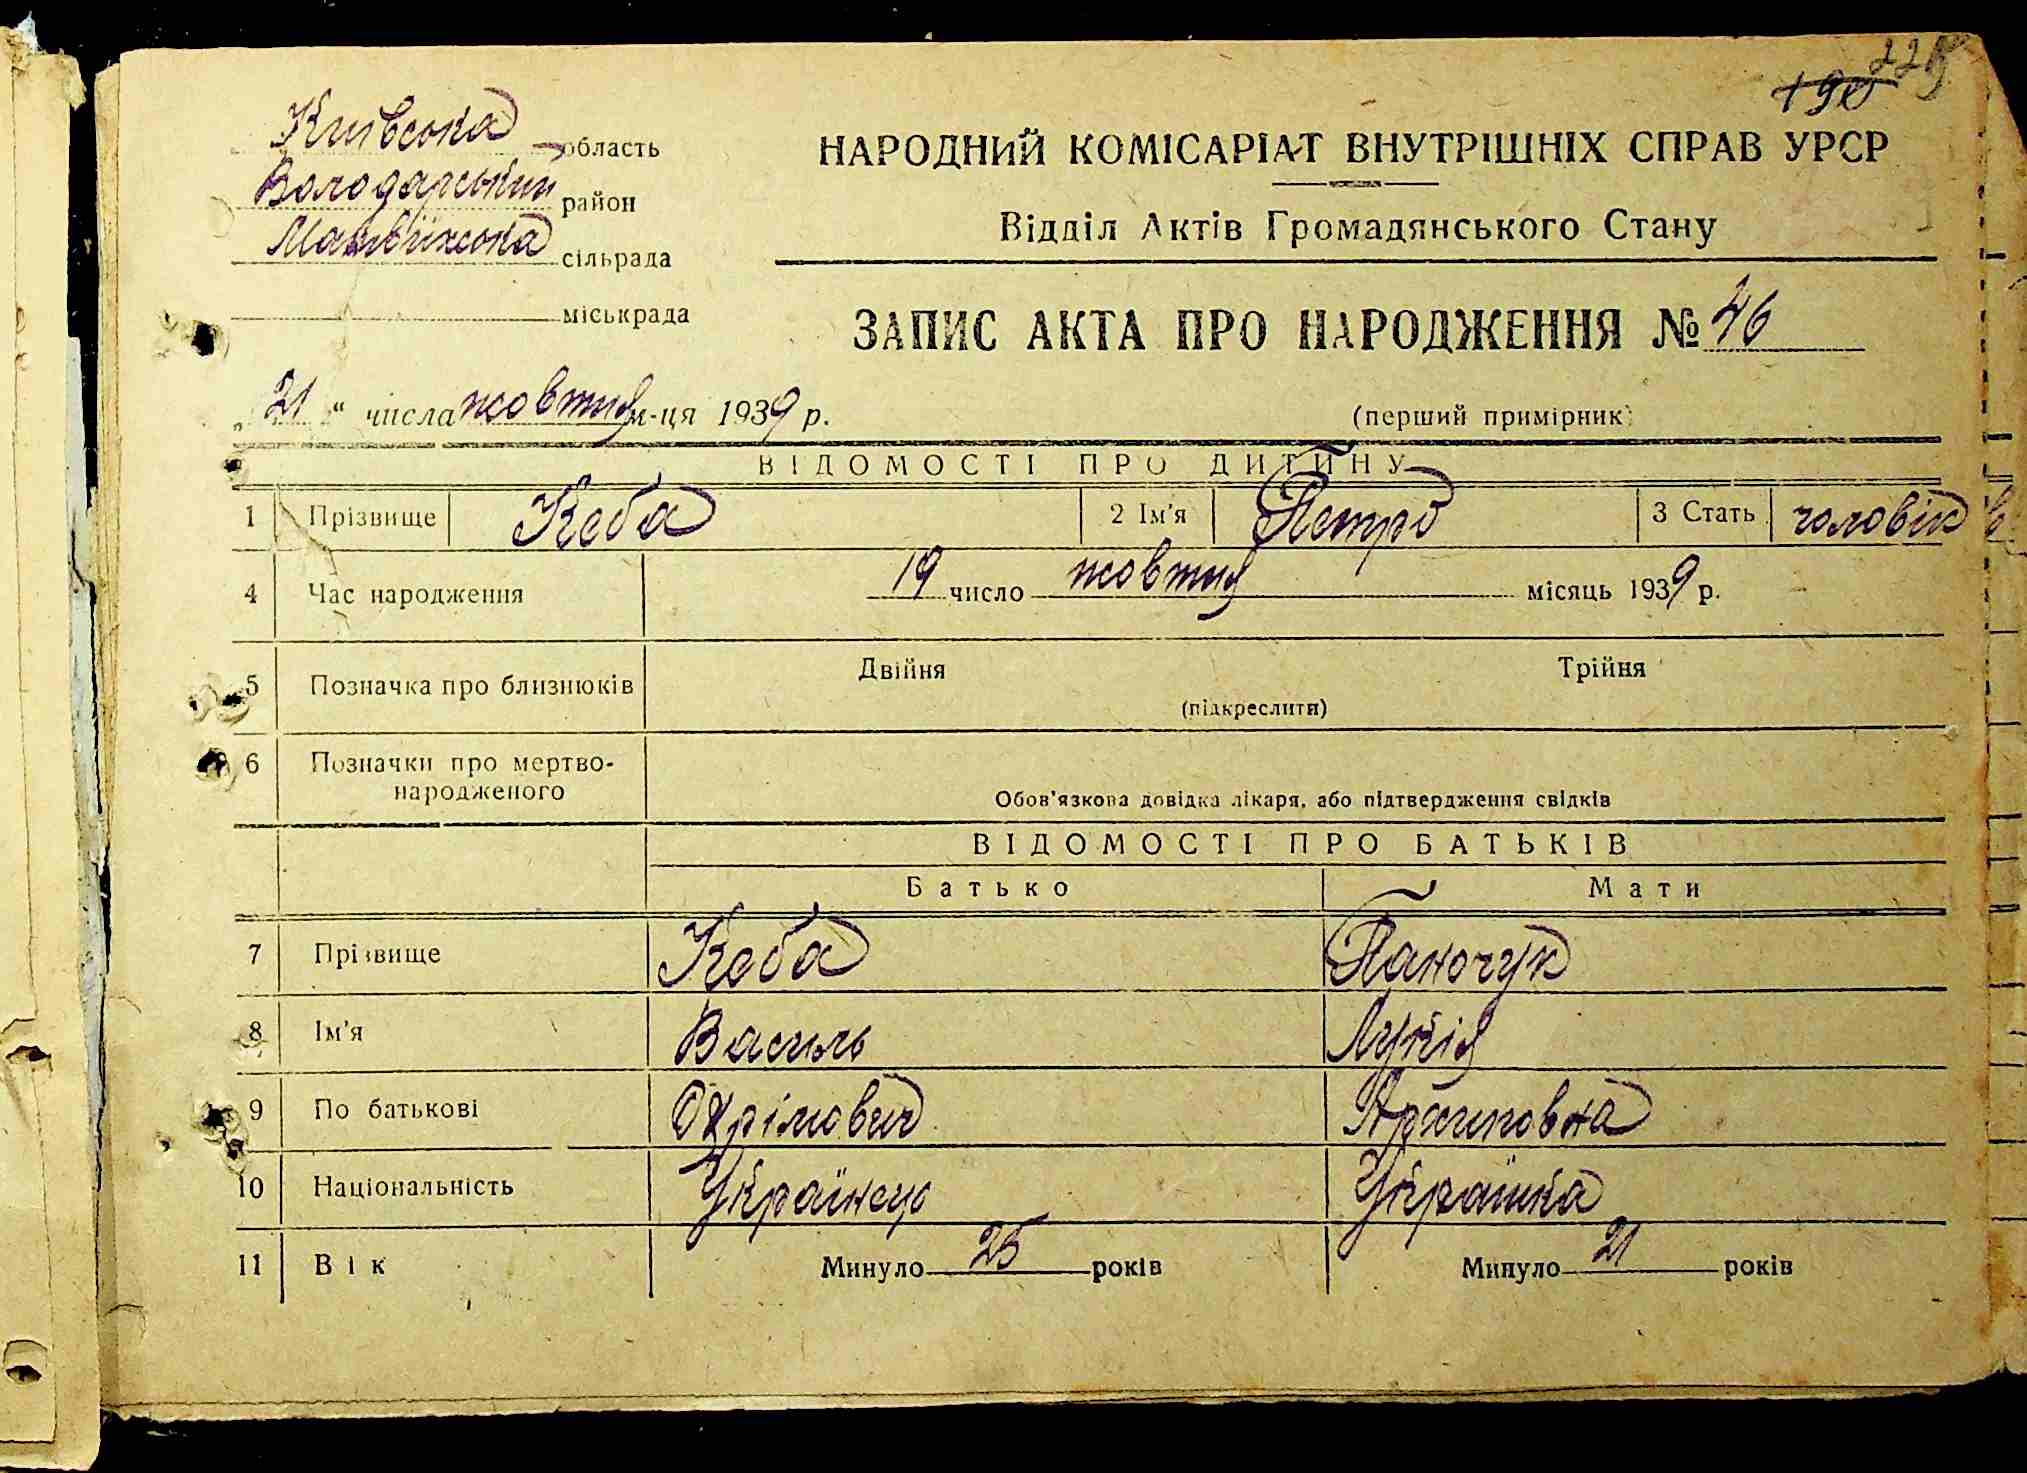 190 225
Київська область
Володарський район
Матвіїхська сільрада
міськрада
НАРОДНИЙ КОМІСАРІАТ ВНУТРІШНІХ СПРАВ УРСР
Відділ Актів Громадянського Стану
ЗАПИС АКТА ПРО НАРОДЖЕННЯ № 46
„21“ числа жовтня м-ця 1939 р.
(перший примірник)
ВІДОМОСТІ ПРО ДИТИНУ
1 Прізвище Кеба 2 Ім'я Петро 3 Стать чоловік
4 Час народження 19 число жовтня місяць 1939 р.
5 Позначка про близнюків Двійня Трійня
(підкреслити)
6 Позначки про мертво-
народженого
Обов'язкова довідка лікаря, або підтвердження свідків
ВІДОМОСТІ ПРО БАТЬКІВ
Батько Мати
7 Прізвище Кеба Паночук
8 Ім'я Василь Лукія
9 По батькові Охрімович Архиповна
10 Національність Українець Українка
11 Вік Минуло 25 років Минуло 21 років